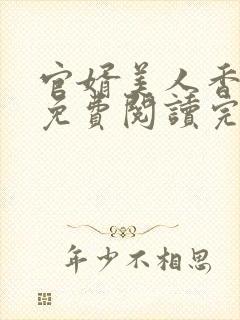 官婿美人香
免費閱讀完
年少不相思